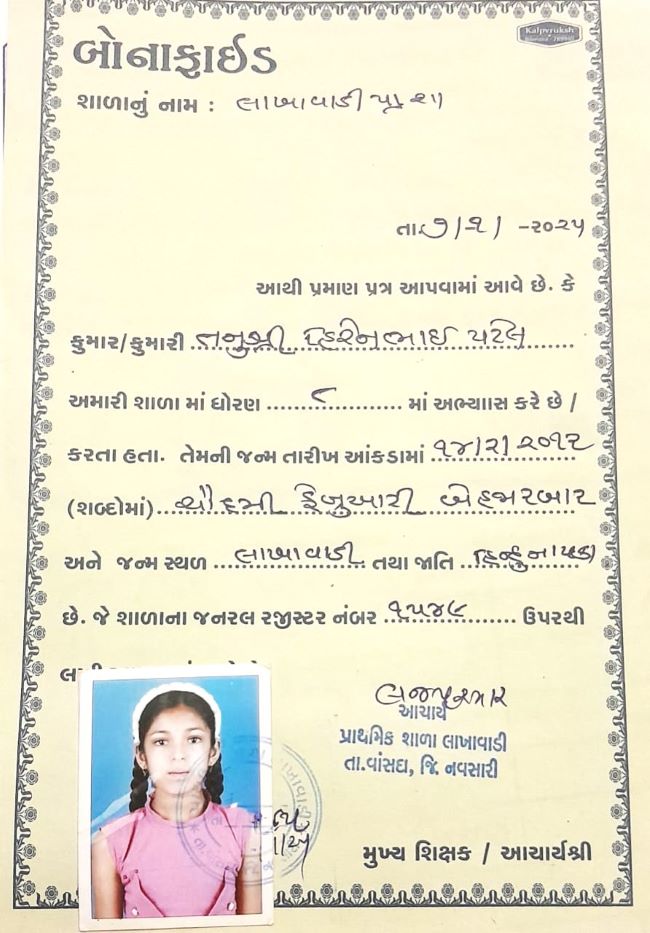 Kalpvruksh
બોનાફાઇડ
શાળાનું નામ : લાખાવાડી પ્રા. શા
તા. ૭/૨/ -૨૦૨૫
આથી પ્રમાણ પત્ર આપવામાં આવે છે. કે
કુમાર/કુમારી તનુશ્રી હિરેનભાઇ પટેલ
અમારી શાળા માં ધોરણ ૮ માં અભ્યાાસ કરે છે /
કરતા હતા. તેમની જન્મ તારીખ આંકડામાં ૧૪/૨/૨૦૧૨
(શબ્દોમાં) ચૌદમી ફેબ્રુઆરી બે હજાર બાર
અને જન્મ સ્થળ લાખાવાડી તથા જાતિ હિન્દુ
છે. જે શાળાના જનરલ રજીસ્ટર નંબર ૧૫૪૯ ઉપરથી
આચાર્ય
પ્રાથમિક શાળા લાખાવાડી
તા.વાંસદા, જિ. નવસારી
મુખ્ય શિક્ષક / આચાર્યશ્રી